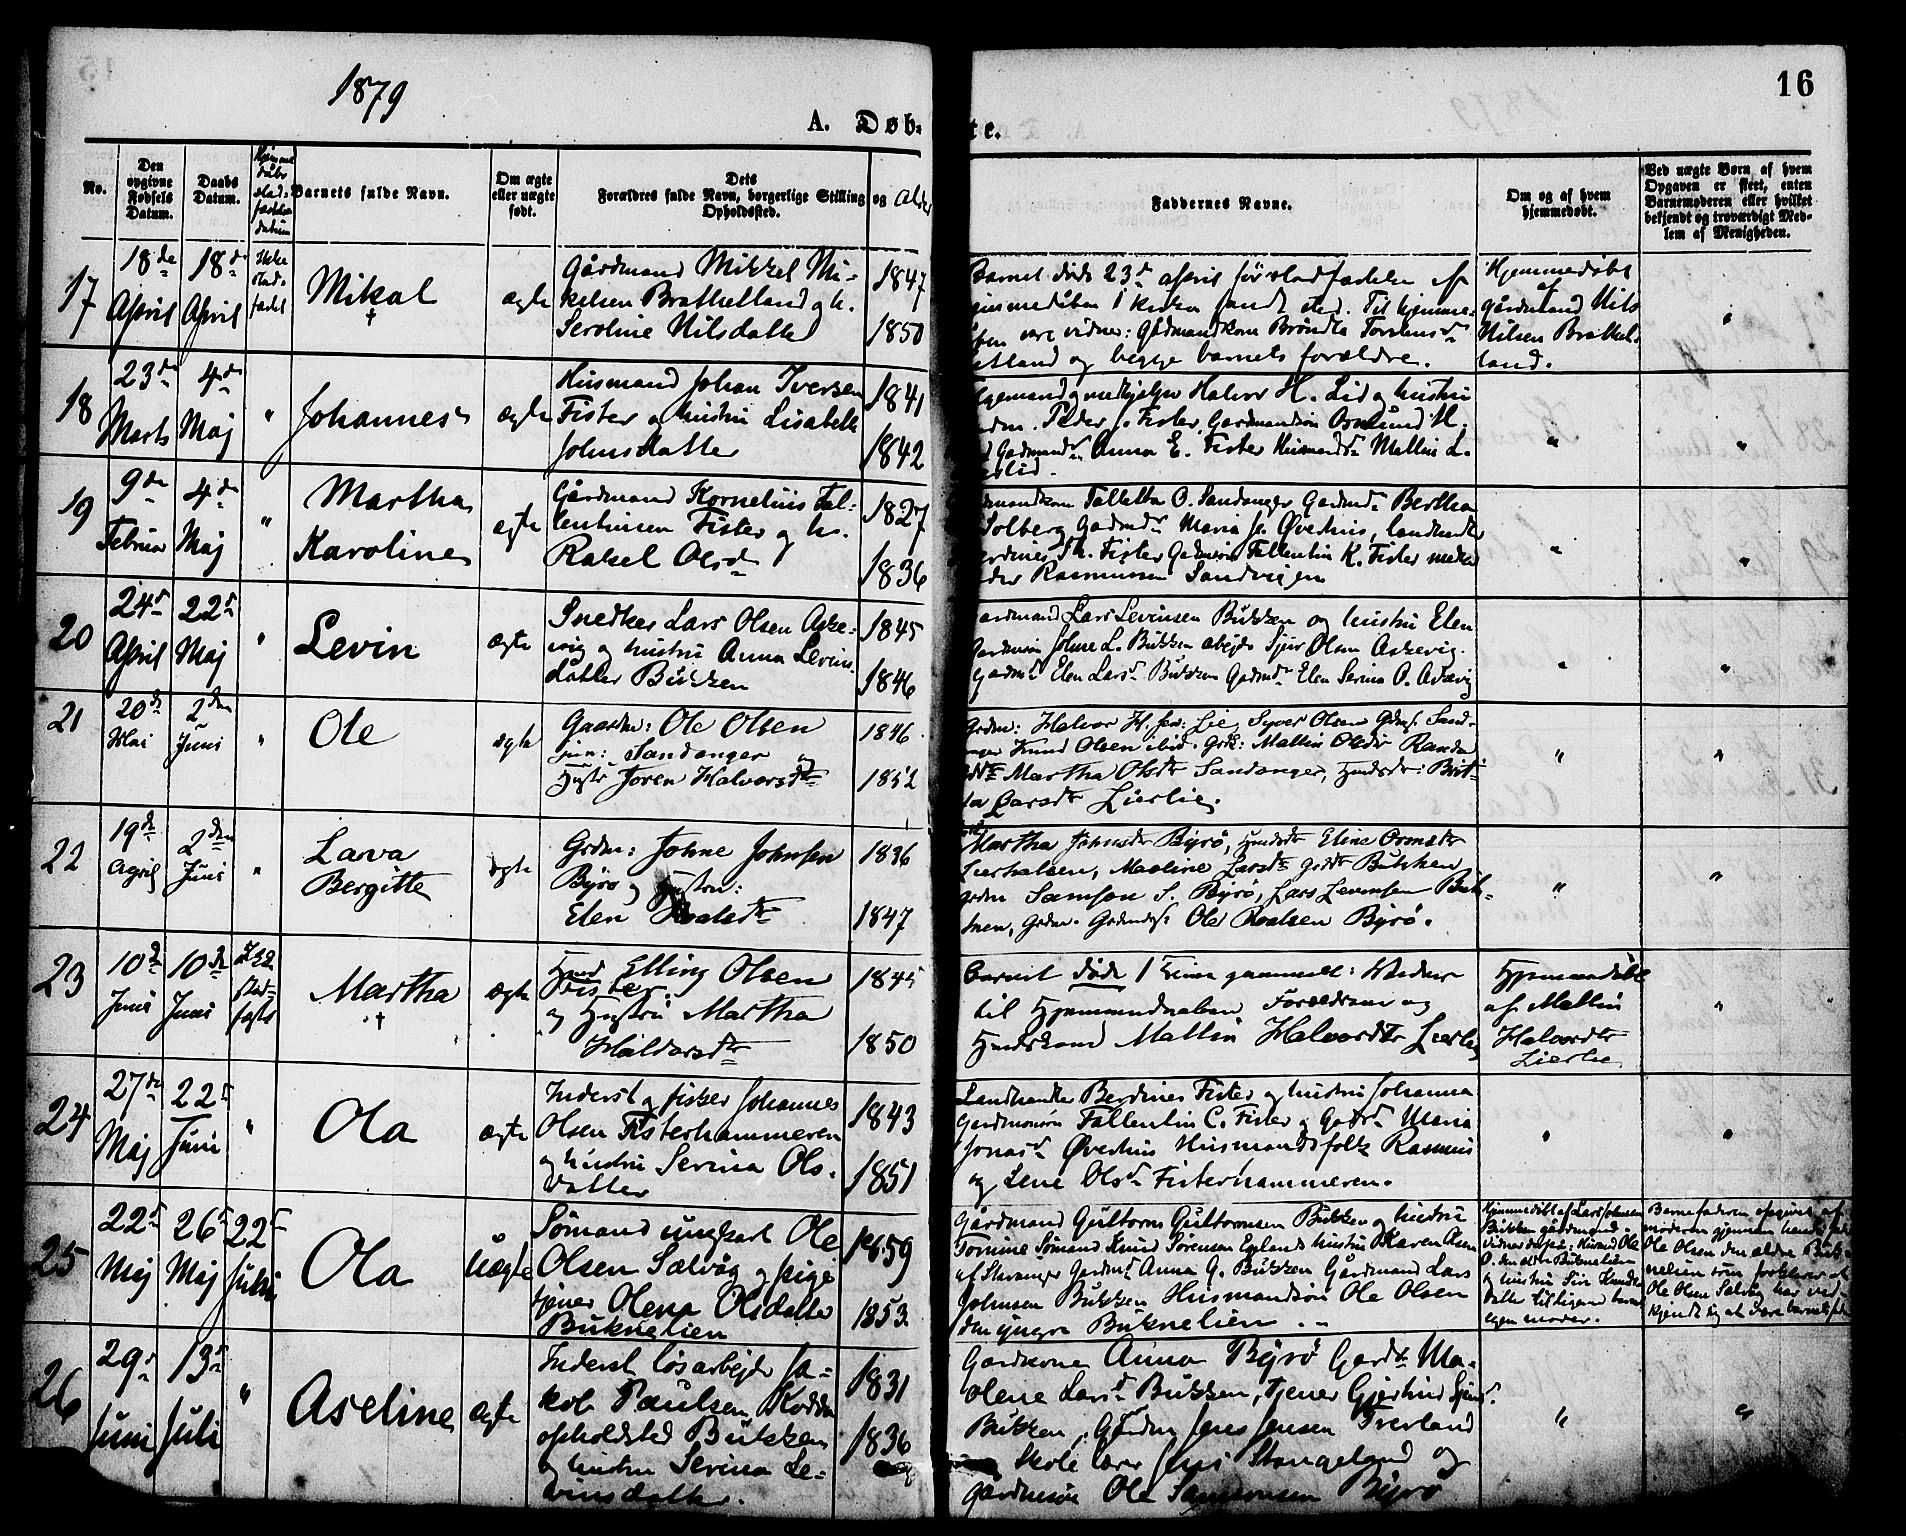 1879
16
A. Døb-
te.
No.
Den opgivne Fødsels Datum.
Daabs Datum.
Barnets fulde Navn.
Om ægte eller uægte født.
Dets Forældres fulde Navn, borgerlige Stilling og Alder
Opholdssted.
Faddernes Navne.
Om og af hvem hjemmedøbt.
Ved uægte Børn af hvem
Opgaven er skeet, enten
Barnemoderen eller hvilket
bekjendt og troværdigt Med-
lem af Menigheden.
17
18de April
18d April
Ikke stad- fæstet
Mikal
†
ægte
Gårdmand Mikkel Mi-
kelsen Brathetland og h.
Seroline Nilsdatter
1847
1850
Barnet døde 23d april før stadfæstelse af
Til hjemme-
vare vidner: Gårdmandkone Brønla
og begge barnets forældre.
Hjemmedøbt
af
gårdmand Nils
Nilsen Brathet-
land.
18
23d Marts
4d Maj
"
Johannes
ægte
Husmand Johan Iversen
Fister og hustru Lisabeth
Johnsdatter
1841
1842
medhjelper Halvor H. Lid og hustru
Peder J. Fister, Gardmandsøn Osmund H.
Gadmandd Anna E. Fister Husmandd Mallin L.
19
9de Februar
4d Maj
"
Martha
Karoline
ægte
Gårdmand Kornelius Fal-
lentinsen Fister og h.
Rakel Olsd
1827
1836
Sandanger Gadmd Bertha
Solberg Gadmd Maria J. Øvrehus, landhandler
Fister Gadmsøn Fallentin K. Fister
Rasmussen Sandvigen
20
24d April
22d Maj
"
Levin
ægte
Snedker Lars Olsen Aske-
vig og hustru Anna Levins-
datter Bukken
1845
1846
Gardmand Lars Levinsen Bukken og hustru Elen
Gardmsøn Johne L. Bukken Sjur Olsen Askevig.
Gadmd Elen Larsd Bukken Gadmd Elen Serina O. Askevig
21
20de Mai
2den Juni
"
Ole
ægte
Gaardm: Ole Olsen
jun: Sandanger og
Hustr Joren Halvorsdtr
1846
1852
Grdm: Halvor H. sen: Lie, Syver Olsen Sand-
anger Knud Olsen ibid. Mallin Olsdtr Randa
Martha Olsdtr Sandanger, Brit-
ta Larsdtr Lierlie.
22
19de April
2den Juni
"
Lava
Bergitte
ægte
Grdm: Johne Johnsen
Byrø og Hustru:
Elen Roalsdtr
1836
1847
Martha Johnsdtr Byrø, Eline Ormsdtr
Lierhalsen, Maoline Larsdtr Bukken
grdm Samson S. Byrø, Lars Levinsen Buk-
ken, Grdm. Ole Roalsen Byrø.
23
10de Juni
10de Juni
Ikke stad- fæst
Martha
†
ægte
Elling Olsen
Fister
og Hustru Martha
Haldorsdtr
1845
1850
Barnet døde 1 time gammelt: Vidner
til Hjemmedaaben Forældrene og
Mallin Halvordtr Lierlie
Hjemmedøbt
af Mallin
Halvordtr
Lierlie
24
27de Maj
22d Juni
"
Ola
ægte
Inderst og fisker Johannes
Olsen Fisterhammeren
og hustru Serina Ols-
datter
1843
1851
Landhandler Berdines Fister og hustru Johanna
Gardmansøn Fallentin C. Fister og Maria
Jonasd Øvrehus Husmandsfolk Rasmus
og Lene Olsd Fisterhammeren.
25
22d Maj
26d Maj
22d Juli
Ola
Uægte
Sømand ungkarl Ole
Olsen Salvåg og pige
tjener Olena Olsdatter
Buknelien
1859
1853
Gårdmand Guttorm Guttormsen Bukken og hustru
Tornine Sømand Knud Sørensen Egelands hustru Karen Olsen
af Stavanger Gardmd Anna G. Bukken Gårdmand Lars
Johnsen Bukken Husmandsøn Ole Olsen
den yngre Buknelien
Hjemmedøbt af Lars Johnsen
Bukken gårdmand
Vidner Husmd Ole
O. den ældre Buknelien
og hustru Siri Knuds-
datter tilligemed barnets
egen moder.
Barnefaderen opgivet af
moderen gjennem hendes fader
Ole Olsen den ældre Buk-
nelien som forklarer at
Ole Olsen Salvåg har ved-
kjendt sig at være barnets fader
26
29d Juni
13d Juli
"
Aseline
ægte
Inderst løsarbejder Ja-
kob Paulsen Kodda
opholdsted Bukken
og hustru Serina Le-
vinsdatter.
1831
1836
Gardkone Anna Byrø Gardd Ma-
olene Larsd Bukken, Tjener Gjertrud
Bukken, Gårdm Jens Jensen Tverland
Skolelærer Jens Stangeland og
Gardmsøn Ole Samsonsen Byrø